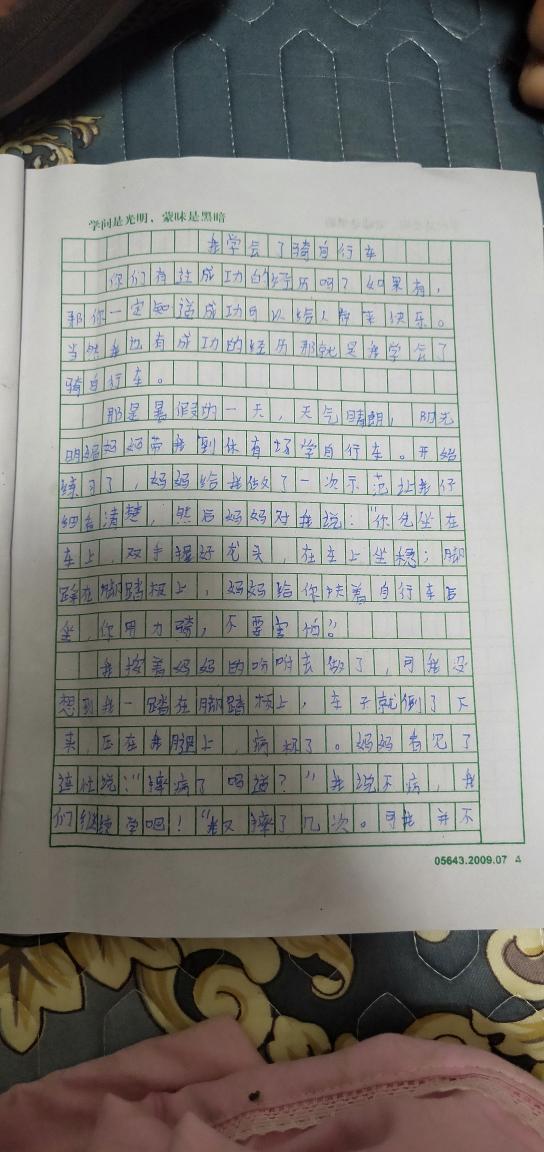 学问是光明，蒙昧是黑暗
我学会了骑自行车
你们有过成功的经历吗？如果有，
那你一定知道成功可以给人带来快乐。
当然我也有成功的经历那就是我学会了
骑自行车。
那是暑假的一天，天气晴朗，阳光
明媚妈妈带我到体育场学自行车。开始
练习了，妈妈给我做了一次示范让我仔
细看清楚，然后妈妈对我说：“你先坐在
车上，双手握好龙头，在车上坐稳；脚
踩在脚踏板上，妈妈给你扶着自行车后
坐，你用力骑，不要害怕。”
我按着妈妈的吩咐去做了，可我没
想到我一踏在脚踏板上，车子就倒了下
来，压在我腿上，病极了。妈妈看见了
连忙说：“摔病了吗？”我说不病，我
们继续学吧！“我又摔了几次。可我并不
05643.2009.07 4